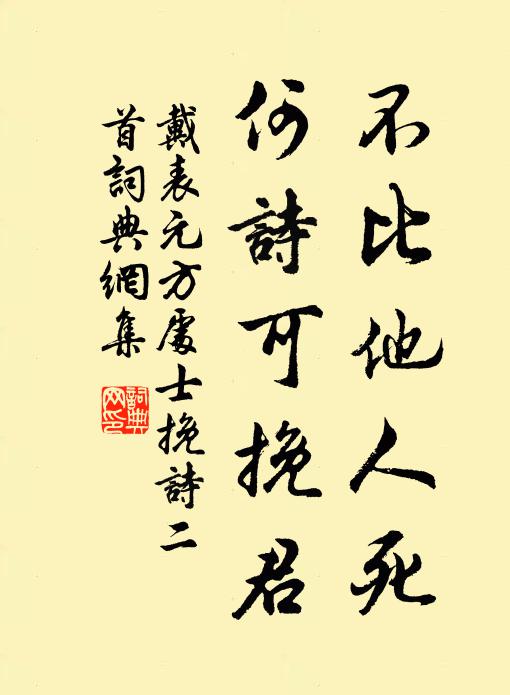 不比他人死
何詩可挽君
戴表元方處士挽詩二
首詞典網集
詞典
网印